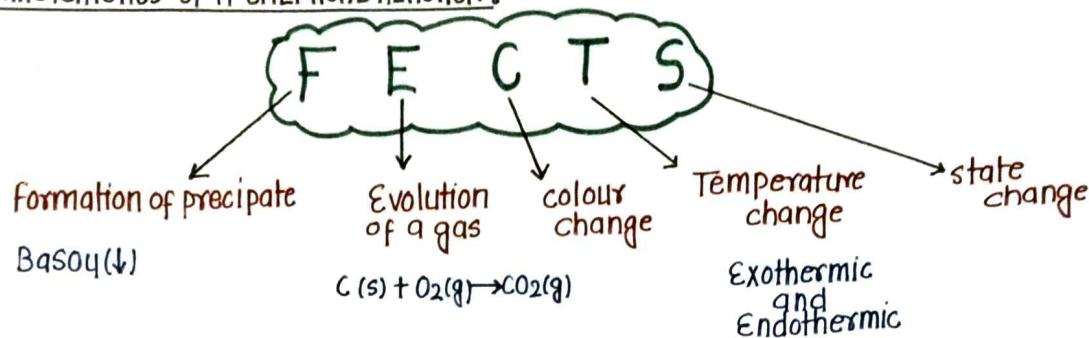 F E C T S
Formation of precipate
BaSO4(↓)
Evolution
of a gas
C(s) + O2(g)→CO2(g)
colour
change
Temperature
change
Exothermic
and
Endothermic
state
change